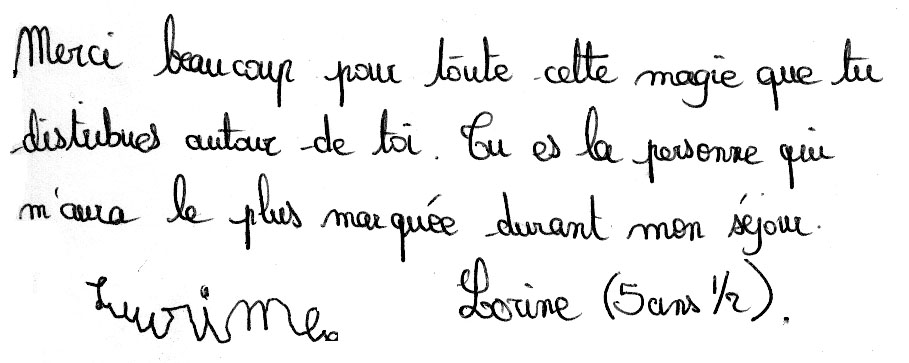 Merci beaucoup pour toute cette magie que tu
distribues autour de toi. Tu es la personne qui
m'aura le plus marquée durant mon séjour.
Lorine (5 ans 1/2).